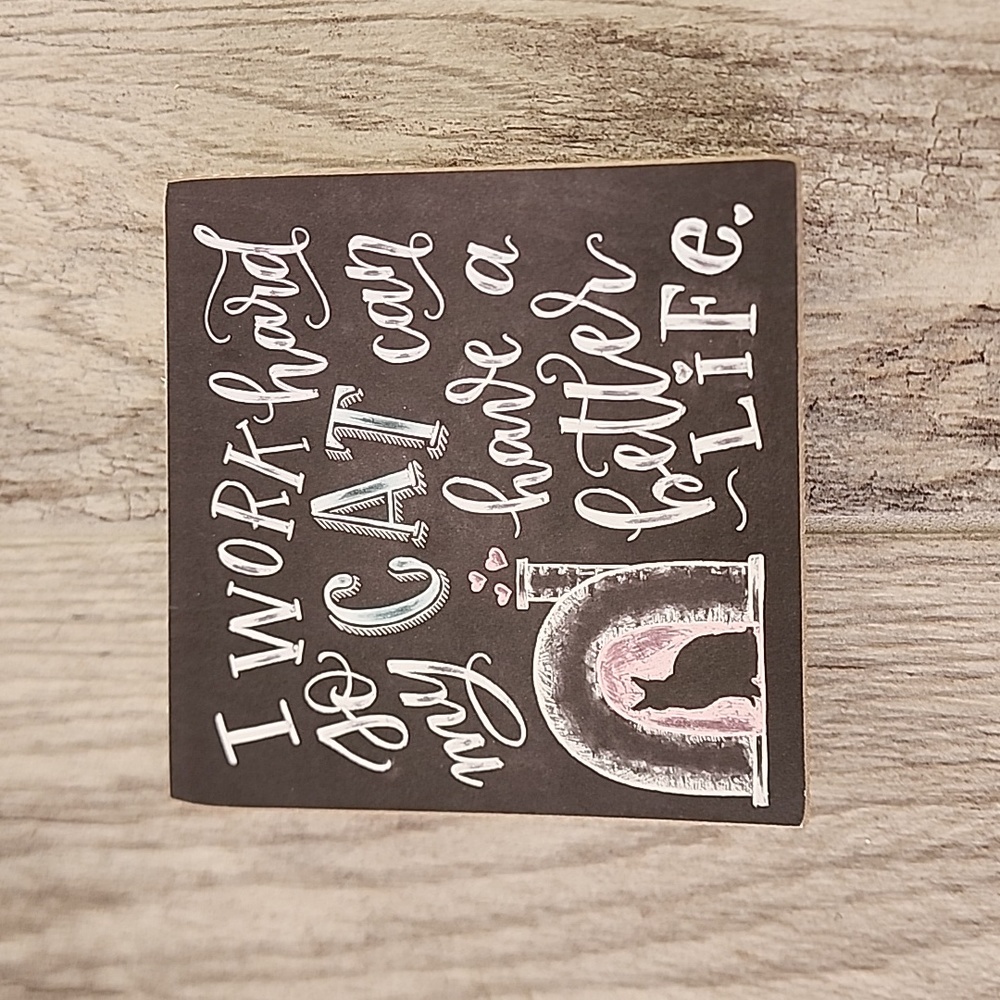 I WORK hard
so my CAT can
have a
better
~LiFe.